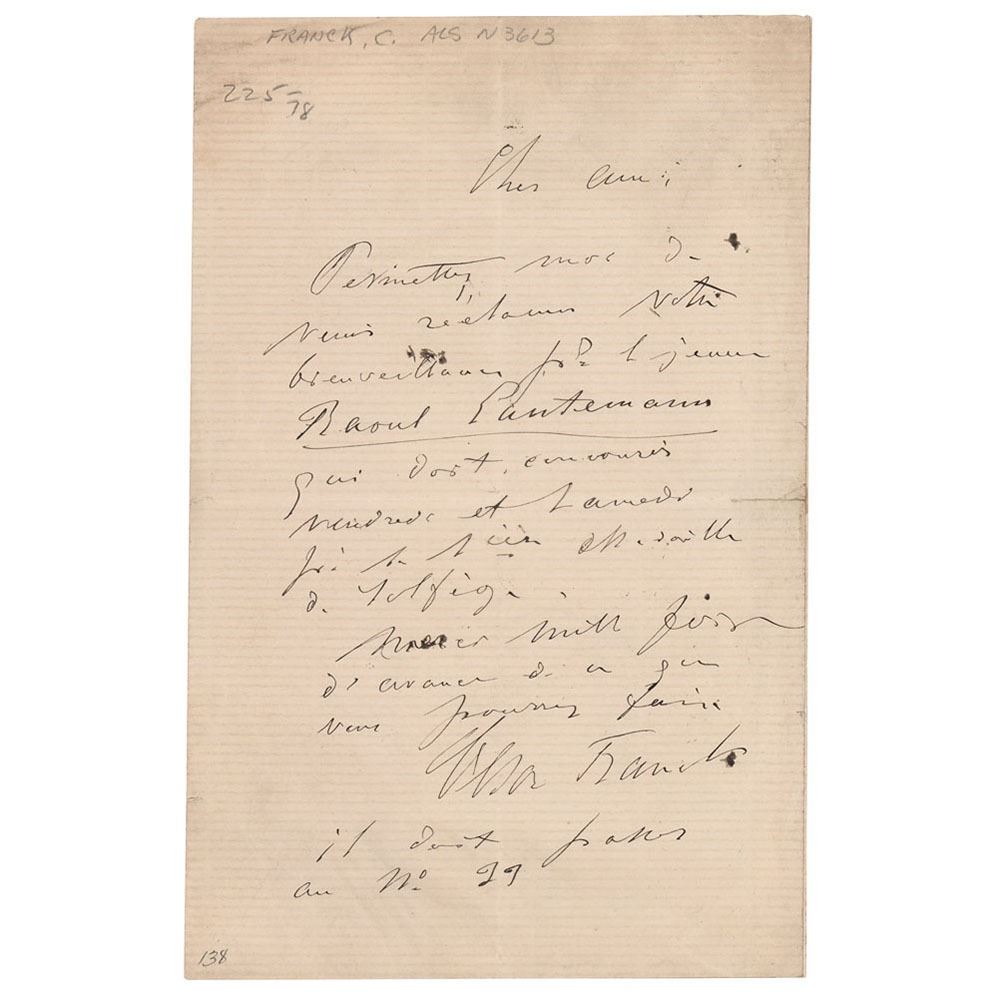 FRANCK, C. ALS N3613
225-
78
Cher ami,
Permettez moi de
venir réclamer votre
bienveillance pr le jeune
Raoul Lautemann
qui doit concourir
vendredi et samedi
pr la 1ière Médaille
de Solfège.
Merci mille fois
d'avance de ce que
vous pourrez faire
César Franck
il doit passer
au No 29
138